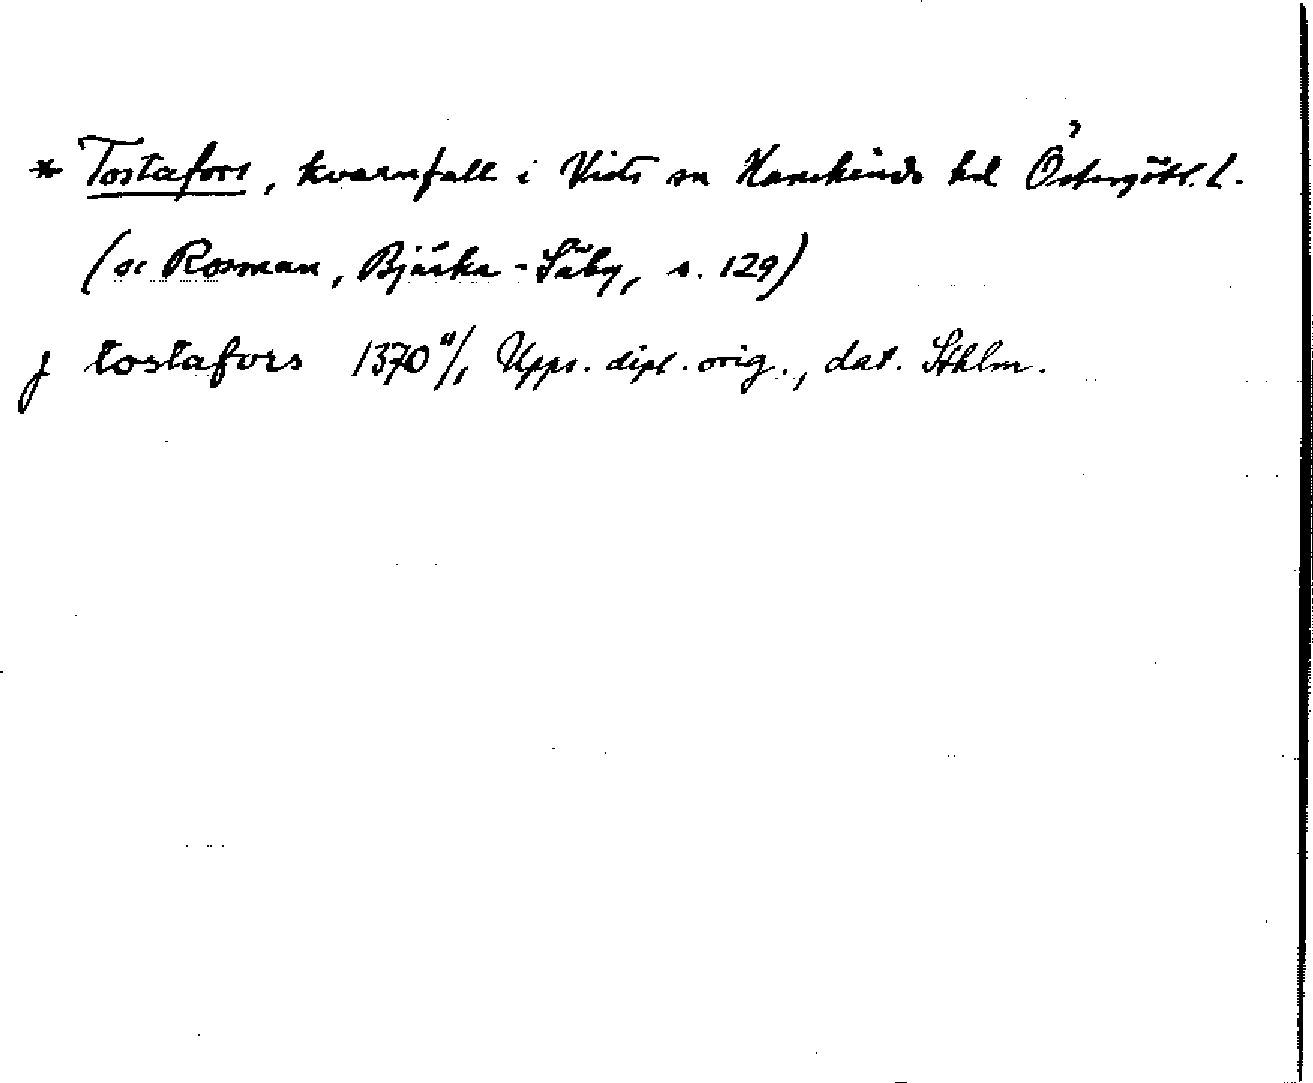 * Tostafors, kvarnfall i Vists sn Hanekinds hd Östergötl. l.
(se Rosman, Bjärka-Säby, s. 129)
j tostafors 1370 Upps. dipl. orig., dat. Sthlm.